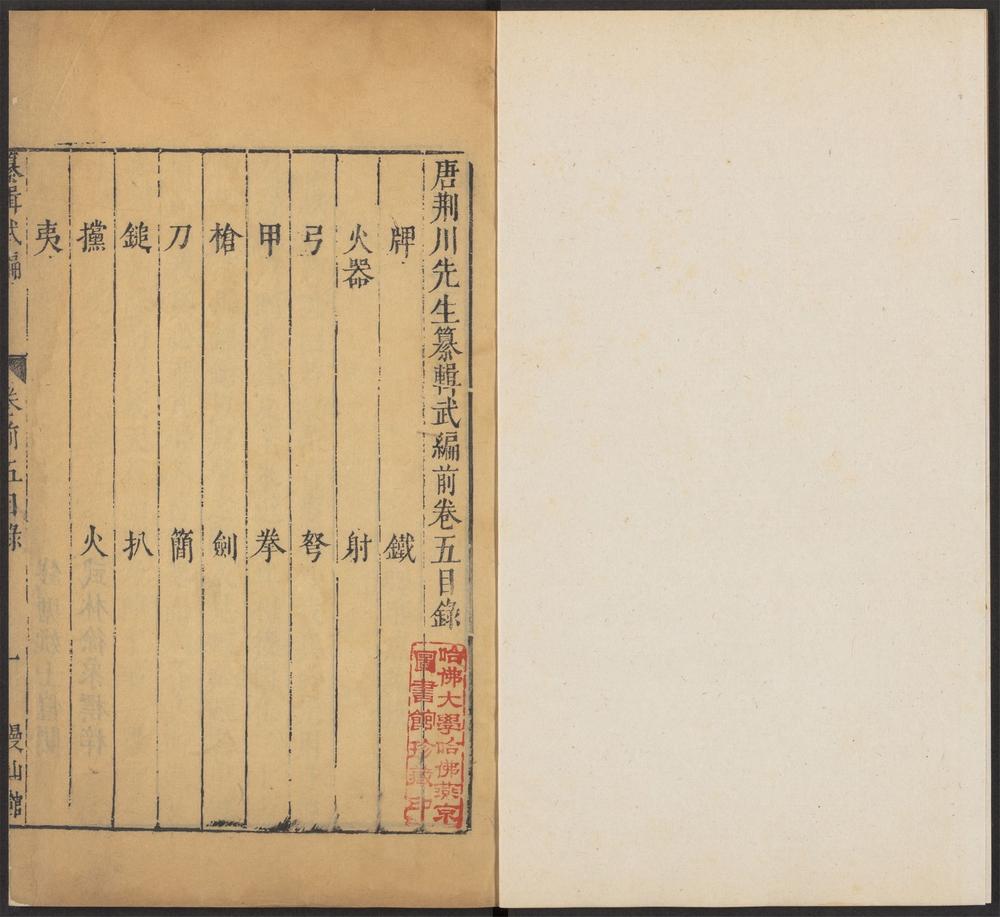 唐荆川先生纂輯武編前卷五目錄
牌　鐵
火器　射
弓　弩
甲　拳
槍　劍
刀　簡
鎚　扒
攩　火
夷
纂輯武編　卷前五目錄　一　曼山館
哈佛大學哈佛燕京
圖書館珍藏印